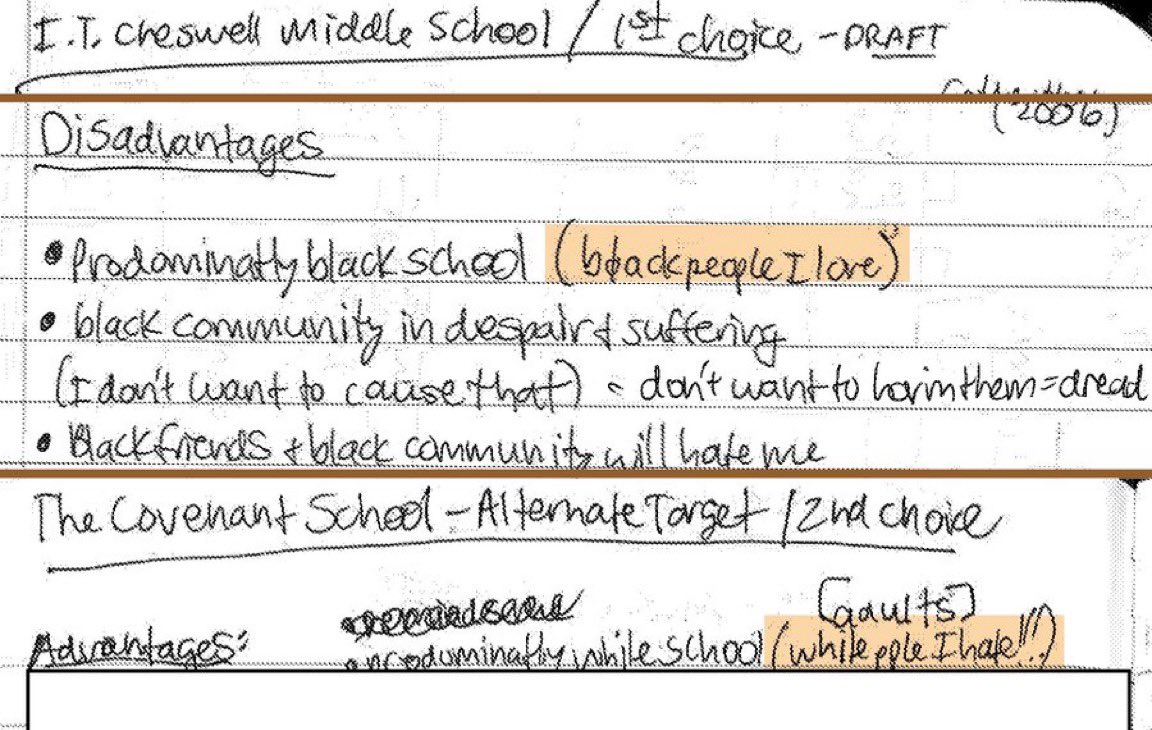 I.T. Creswell Middle School / 1st choice - DRAFT
(2006)
Disadvantages
• Prodominatly black school (black people I love)
• black community in despair & suffering
(I don't want to cause that) - don't want to harm them = dread
• Black friends & black community will hate me
The Covenant School - Alternate Target / 2nd choice
[adults]
Advantages:
• prodominatly white school (white pple I hate!!!)